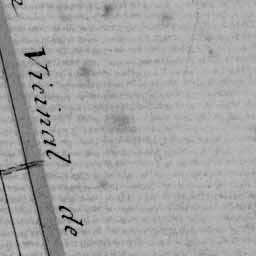 Vicinal de